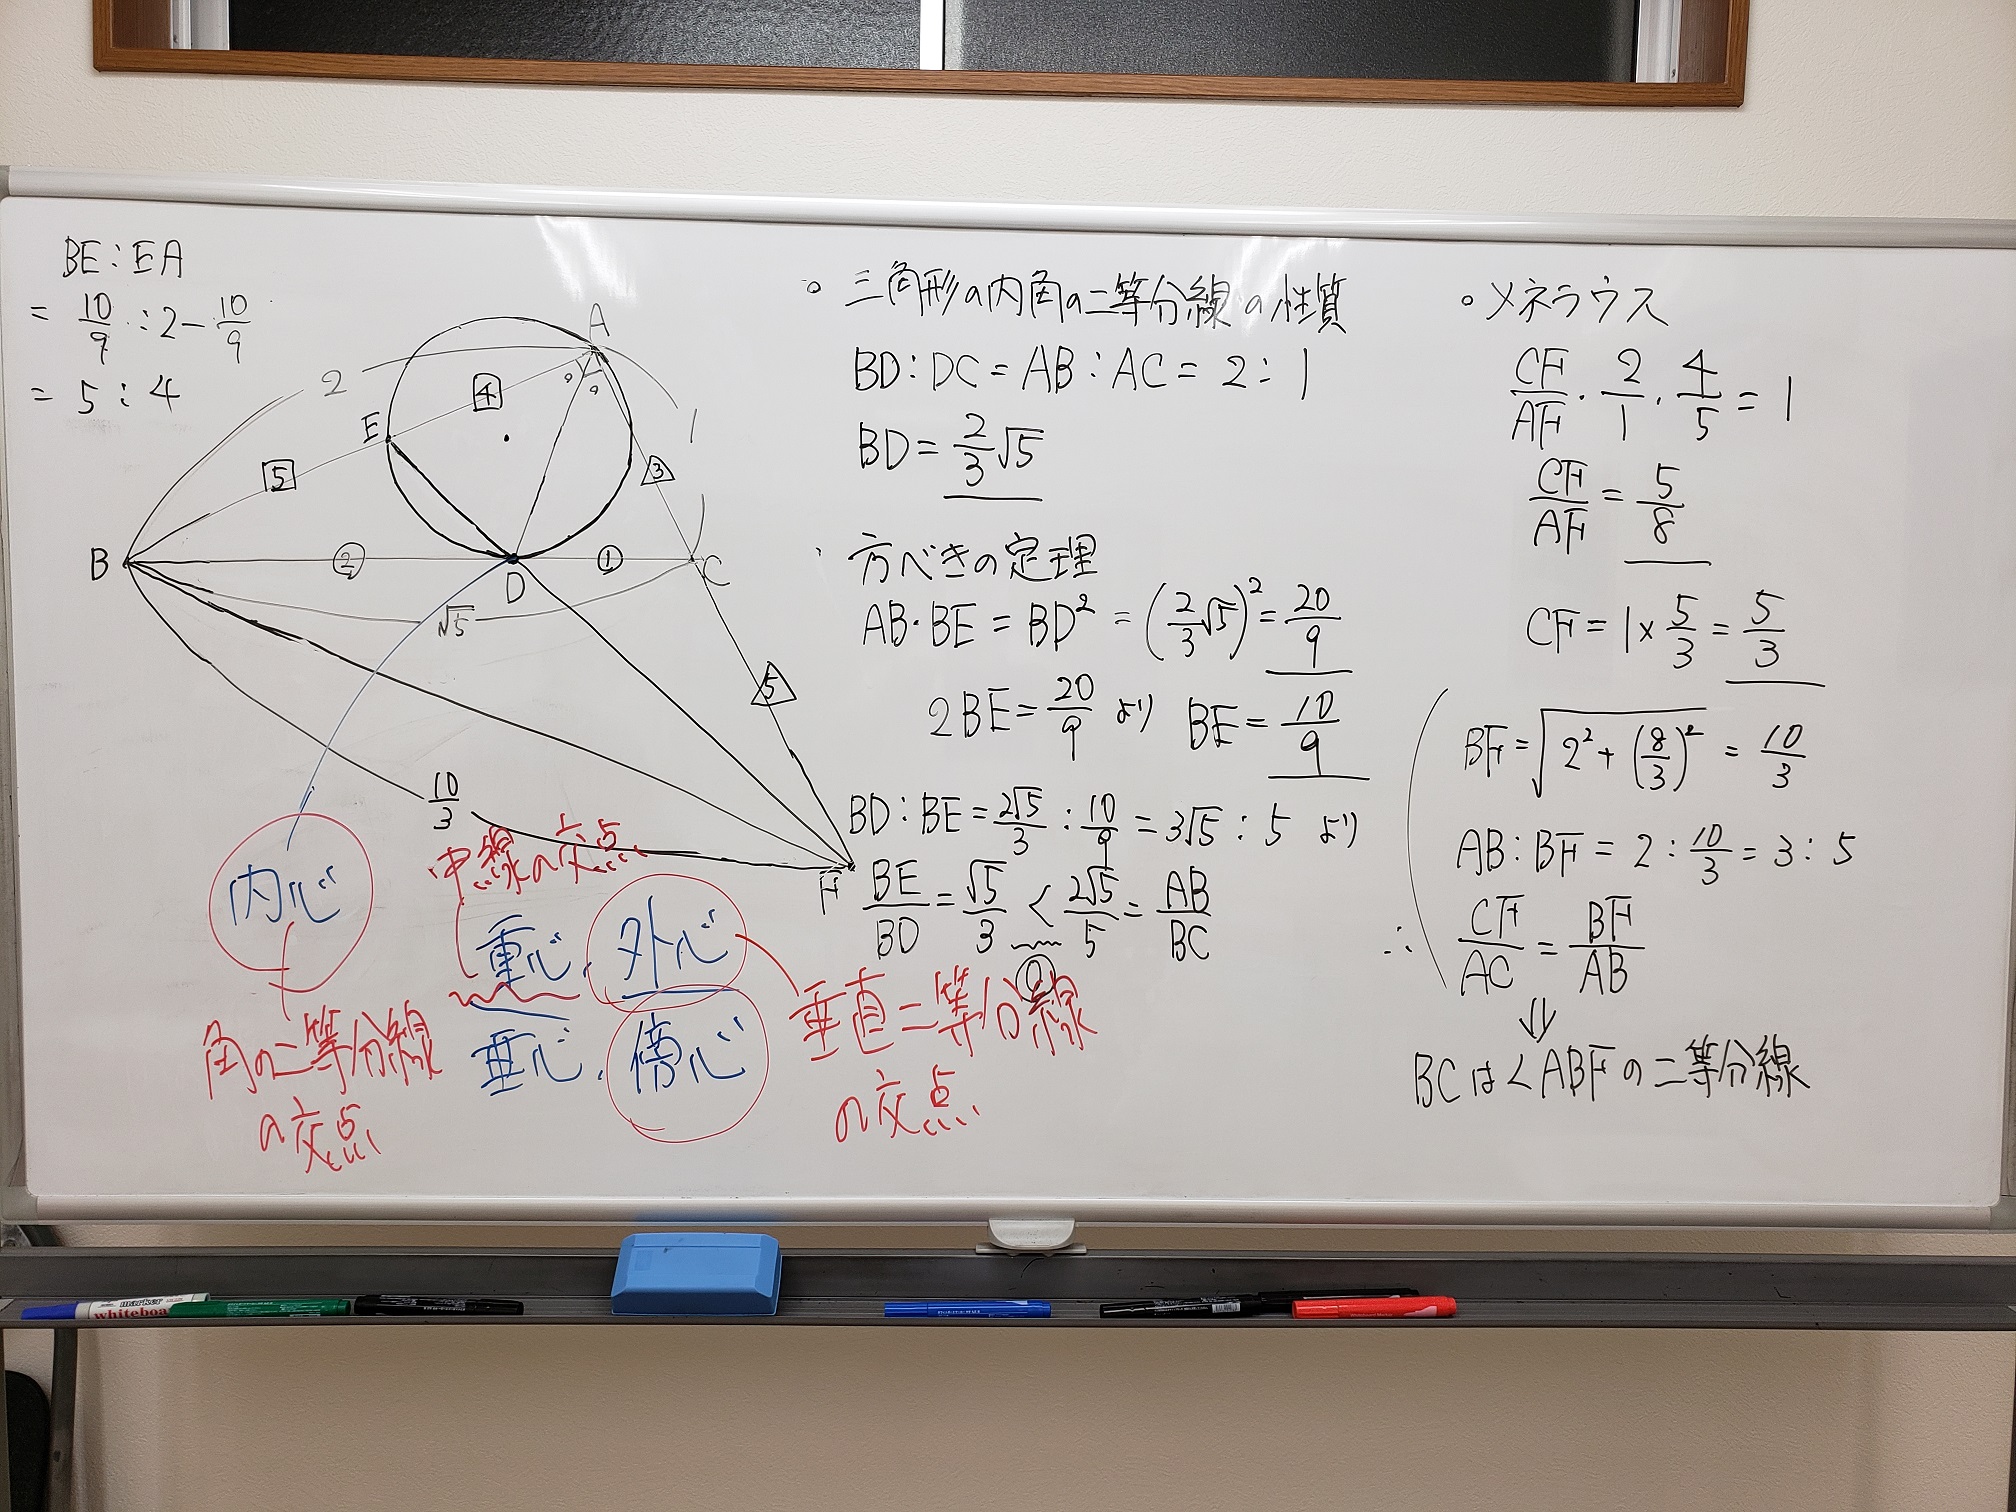 BE:EA
= 10/9 : 2 - 10/9
= 5:4
A
2
4
E
1
5
3
B
2
D
1
C
√5
5
10/3
F
内心
角の二等分線
の交点
中線の交点
重心, 外心
垂心, 傍心
垂直二等分線
の交点
。三角形の内角の二等分線の性質
BD:DC = AB:AC = 2:1
BD = 2/3 √5
方べきの定理
AB・BE = BD² = (2/3 √5)² = 20/9
2BE = 20/9 より BE = 10/9
BD:BE = 2√5/3 : 10/9 = 3√5 : 5 より
BE/BD = √5/3 < 2√5/5 = AB/BC
⓪
。メネラウス
CF/AF・2/1・4/5 = 1
CF/AF = 5/8
CF = 1×5/3 = 5/3
BF = √(2² + (8/3)²) = 10/3
AB:BF = 2:10/3 = 3:5
∴ CF/AC = BF/AB
⇓
BCは∠ABFの二等分線
marker
whiteboa